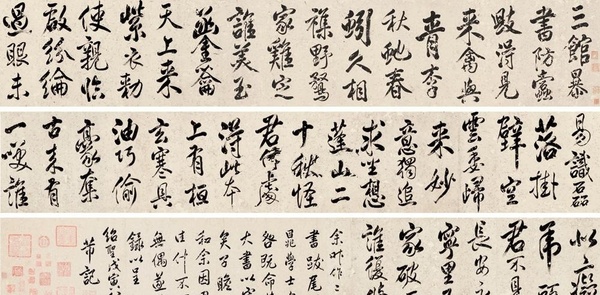 三館暴
書防蠹
毀得見
來禽與
青李
秋蛇春
蚓久相
雜野鶩
家雞定
誰美玉
函金鑰
天上來
紫衣勅
使親臨
啟紛綸
過眼未
易識磊
落掛
壁空
雲委歸
來妙
意獨追
求坐想
蓬山二
十秋怪
君何處
得此本
上有桓
玄寒具
油巧偷
豪奪
古來有
一笑誰
似癡
虎
君不見
長安永
寧里
家破
誰復
余昨作
書跋尾
晁學士
咎既命
大書以
矣子瞻
和余因
佳什不
無偶遂
錄以呈
紹聖戊寅
芾記